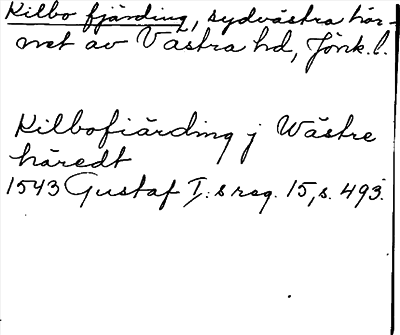 Kilbo fjärding, sydvästra hör-
net av Västra hd, Jönk. l.
Kilbofiärding j Wästre
häredt
1543 Gustaf I:s reg. 15, s. 493.